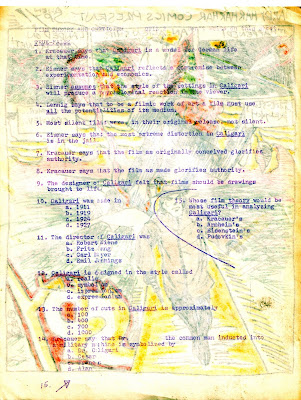 COMICS
True-False
1. Kracauer says that Caligari is a model for German life
at that time.
2. Eisner says that Caligari reflects a compromise between
experimentation and economics.
3. Eisner assumes that the style of the settings in Caligari
will produce a predictable reaction in the viewer.
4. says that to be a filmic work of art a film must use
all the potentialities of its medium.
5. Most silent films were, in their original release, silent.
6. Eisner says that the most extreme distortion in Caligari
is in the jail.
7. Kracauer says that the film as originally conceived glorifies
authority.
8. Kracauer says that the film as made glorifies authority.
9. The designer of Caligari felt that films should be drawings
brought to life.
10. Caligari was made in
a. 1911
b. 1919
c. 1924
d. 1927
11. The director of Caligari was
a. Robert Wiene
b. Fritz Lang
c. Carl Mayer
d. Emil Jannings
12. Caligari is designed in the style called
13. The number of cuts in Caligari is approximately
a. 100
b. 400
c. 700
d. 1000
14. Kracauer says that the common man inducted into
military machine is symbolized by
a. Dr. Caligari
b. Cesare
15. Whose film theory would be
most useful in analyzing
Caligari?
a. Kracauer's
b. Arnheim's
c. Eisenstein's
d. Pudovkin's
15.